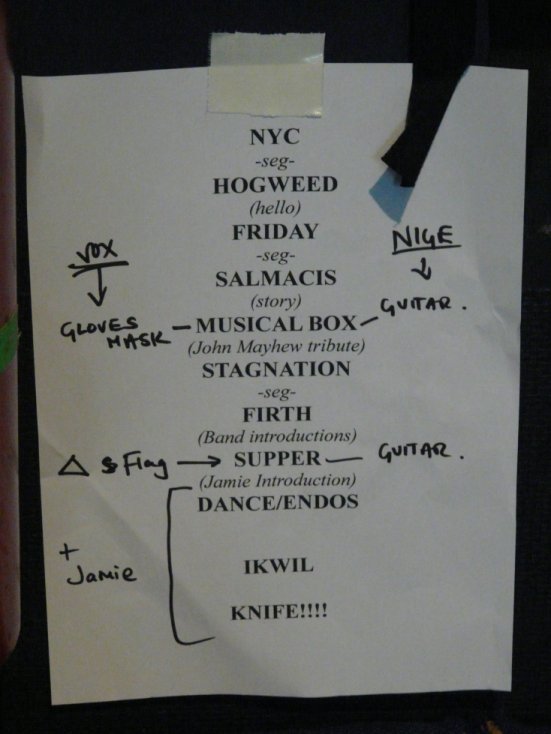 NYC
-seg-
HOGWEED
(hello)
FRIDAY
NIGE
-seg-
VOX
SALMACIS
(story)
GUITAR.
GLOVES
MASK - MUSICAL BOX -
(John Mayhew tribute)
STAGNATION
-seg-
FIRTH
(Band introductions)
△ & Flag → SUPPER — GUITAR.
(Jamie Introduction)
DANCE/ENDOS
+
Jamie
IKWIL
KNIFE!!!!